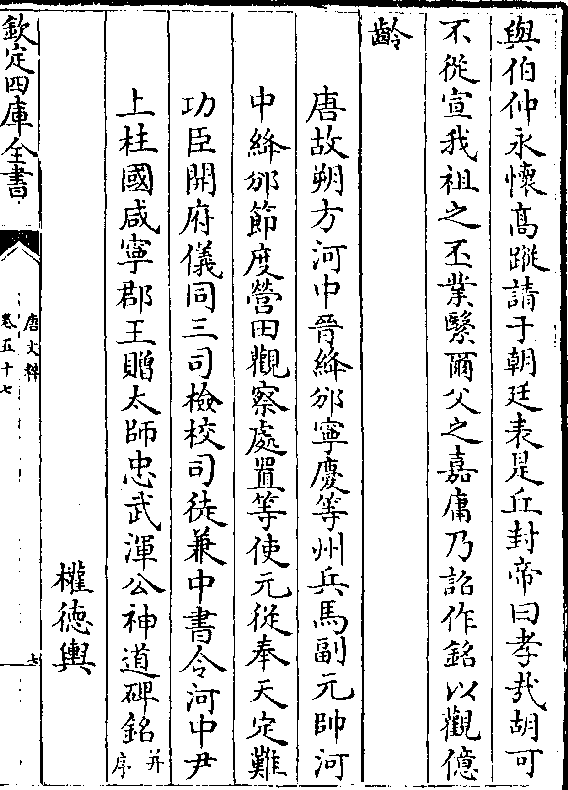 與伯仲永懷髙蹤請于朝廷表是丘封帝曰孝哉胡可
不從宣我祖之丕業繄爾父之嘉庸乃詔作銘以觀億
齡
唐故朔方河中晉絳邠寧慶等州兵馬副元帥河
中絳邠節度營田觀察處置等使元從奉天定難
功臣開府儀同三司檢校司徒兼中書令河中尹
上柱國咸寧郡王贈太師忠武渾公神道碑銘并序
權德輿
欽定四庫全書
唐文粹
卷五十七